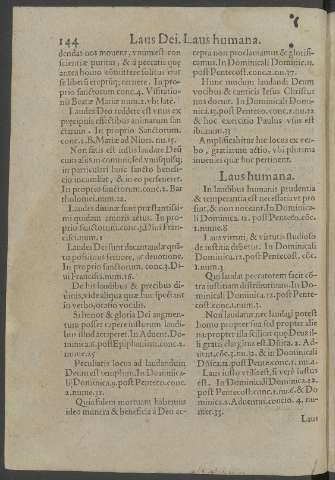 144 Laus Dei. Laus humana.
dendas nos mouere, vnum est con
scientiæ puritas, & à peccatis quę
antea homo cōmittere solitus fuit
se liberū ereptūq; cernere. In pro
prio sanctorum conc. 4. Visitatio-
nis Beatæ Mariæ num. 2. vbi latè.
Laudes Deo reddere est vnus ex
præcipuis effectibus animarum san
ctarum. In proprio Sanctorum.
conc. 1. B. Mariæ ad Niues. nu. 15.
Non satis est iustis laudare Deū
cum aliis in communi, sed vnusquisq;
in particulari huic sancto benefi-
cio incumbat, & in eo perseueret.
In proprio sanctorum. conc. 2. Bar
tholomæi. num. 12.
Laudes diuinæ sunt præstantissi-
mi quidam amoris actus. In pro-
prio sanctorum. conc. 3. Diui Fran
cisci. num. 1
Laudes Dei sunt decantandæ quā-
to possumus feruore, & deuotione.
In proprio sanctorum. conc. 3. Di
ui Francisci. num. 16.
De his laudibus & precibus di-
uinis, vide aliqua quæ huc spectant
in verbo, oratio vocalis.
Si honor & gloria Dei augmen-
tum posset capere iustorum laudi-
bus illud acciperet. In Aduent. Do-
minica 2. post Epiphaniam. conc. 1.
numer. 25
Peculiaris locus ad laudandum
Deum est templum. In Dominica-
li Dominica 9. post Penteco. conc.
2. nume. 31.
Quia salem mortuam habemus
ideo munera & beneficia à Deo ac-
cepta non proclamamus & glorifi-
camus. In Dominicali Dominic. 11.
post Pentecost. conc. 2. nu. 17.
Hunc modum laudandi Deum
vocibus & canticis Iesus Christus
nos docuit. In Dominicali Domi-
nica. 13. post Penteco. conc. 2. nu. 12
& hoc exercitio Paulus vsus est
ibi. num. 13
Amplificabitur hic locus ex ver-
bo, gratiarum actio, vbi plurima
inuenies quæ huc pertinent.
Laus humana.
In laudibus humanis prudentia
& temperantia est necessaria et pro
sunt, & non nocent. In Dominica-
li Dominica 12. post Penteco. cōc.
1. nume. 8
Laus virtuti, & virtutis studioso
de iustitia debetur. In Dominicali
Dominica. 12. post Pentecost.
conc. 1. num. 1
Qui laudat peccatorem facit cō-
tra iustitiam distributiuam. In Do-
minicali Dominica. 12. post Pente-
cost. conc. 1. num. 3.
Non laudatur, nec laudari potest
homo propter sua sed propter alie
na propter illa scilicet quę Deus il-
li gratis elargitus est. Dñica. 2. Ad-
uent. cōc. 3. nu. 2. & in Dominicali
Dñica. 12. post Penteco. conc. 1. nu. 4.
Laus iusto vtilis est, si verè iustus
est. In Dominicali Dominica. 12.
post Pentecost. conc. 1. nu. 6. & Do
minica 2. Aduentus. concio. 4. nu-
mer. 35.
Laus